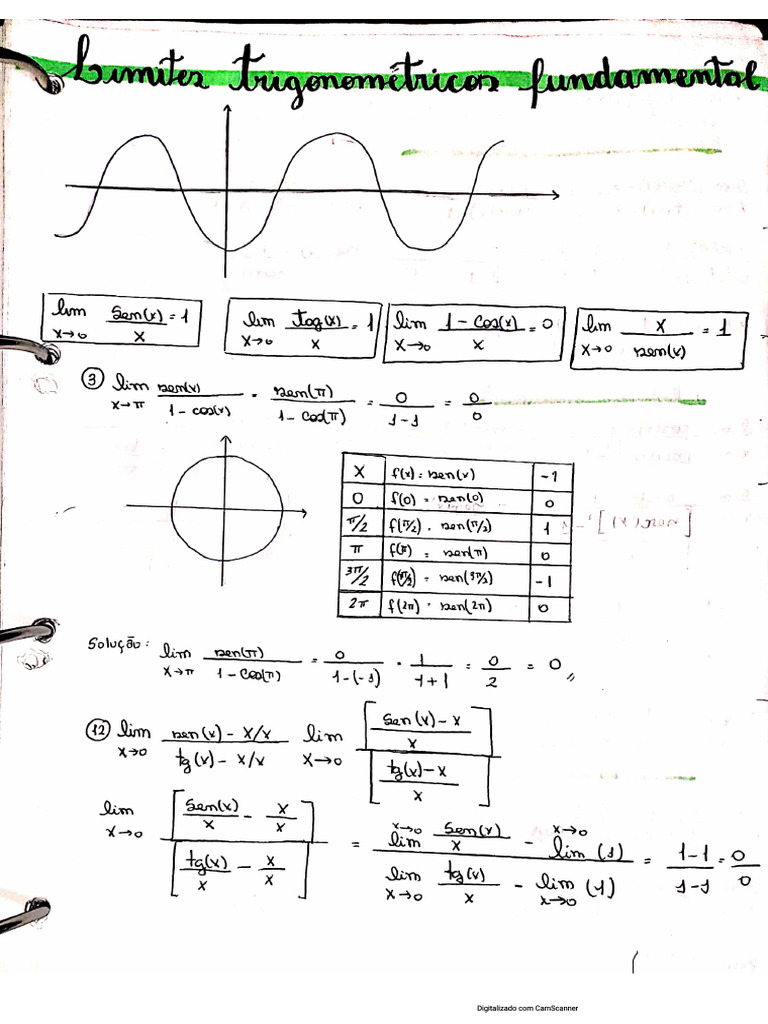 Limites trigonométricos fundamental
lim x→0 sen(x)/x = 1
lim x→0 tag(x)/x = 1
lim x→0 1 - cos(x)/x = 0
lim x→0 x/sen(x) = 1
③ lim x→π sen(x)/1 - cos(x) = sen(π)/1 - cos(π) = 0/1-1 = 0/0
x f(x) = sen(x) -1
0 f(0) = sen(0) 0
π/2 f(π/2) = sen(π/2) 1
π f(π) = sen(π) 0
3π/2 f(3π/2) = sen(3π/2) -1
2π f(2π) = sen(2π) 0
Solução: lim x→π sen(π)/1 - cos(π) = 0/1-(-1) = 1/1+1 = 0/2 = 0 //
⑫ lim x→0 sen(x) - x/x / tg(x) - x/x lim x→0 [sen(x) - x/x] / [tg(x) - x/x]
lim x→0 [sen(x)/x - x/x] / [tg(x)/x - x/x] = lim x→0 sen(x)/x - lim x→0 (1) / lim x→0 tg(x)/x - lim x→0 (1) = 1-1/1-1 = 0/0
Digitalizado com CamScanner